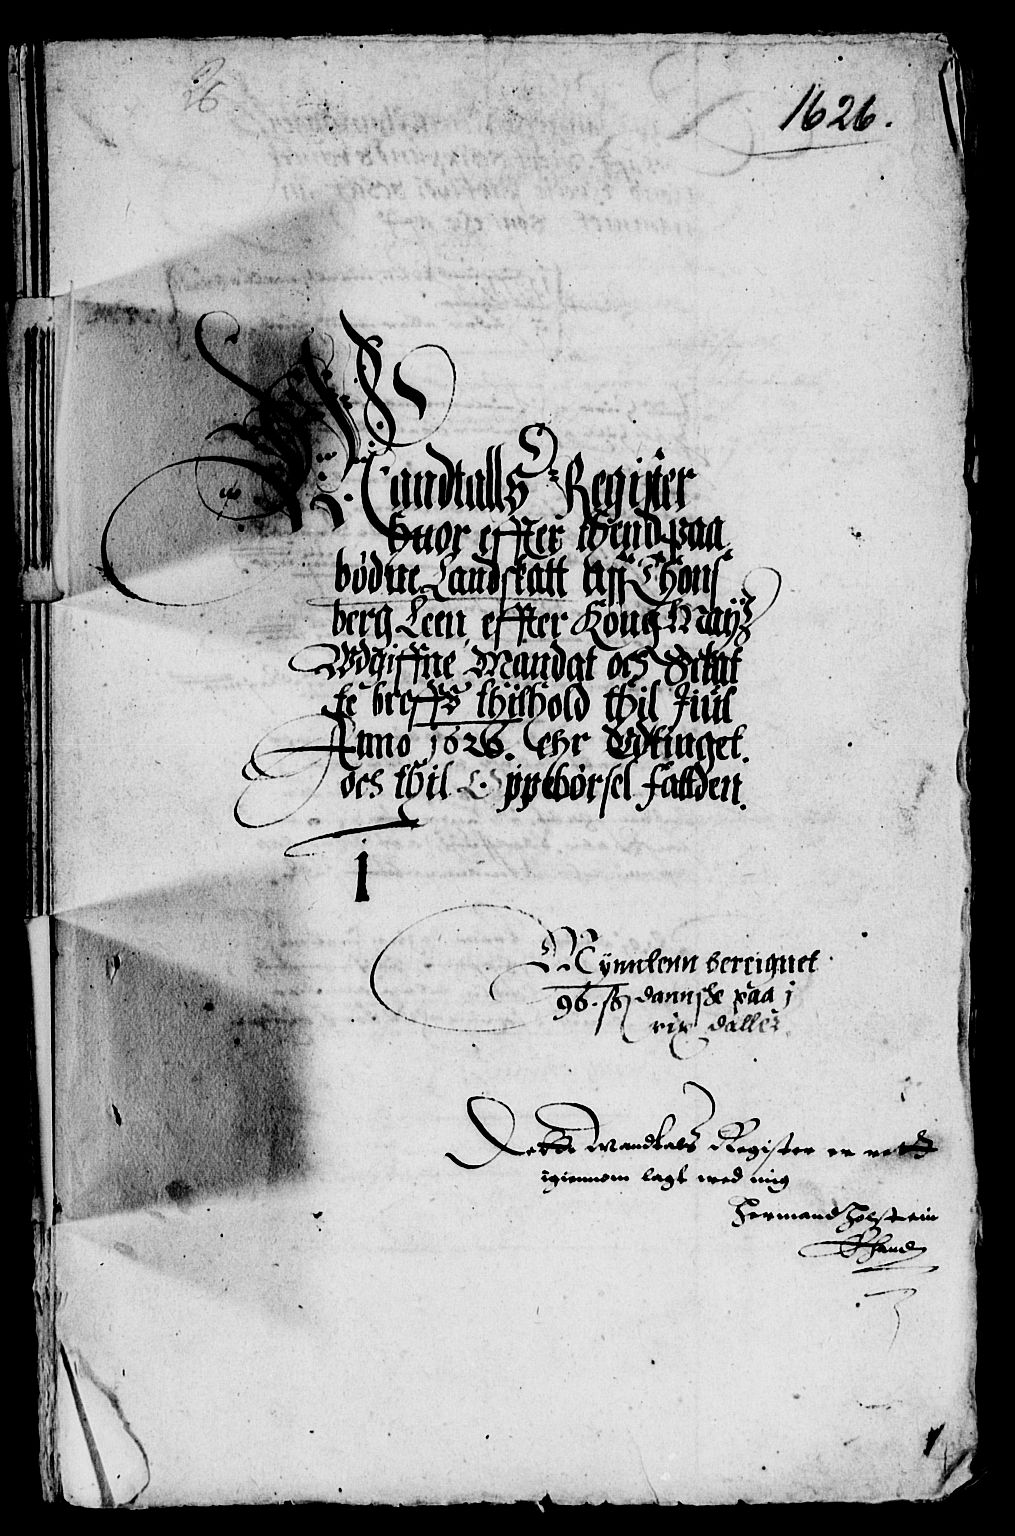 26
1626.
Mandtalls Register
Huor effter thend paa
bødne Landskatt aff Thons
berg Leen, effter Kong: Maÿtz
Wdgiffne Mandat och Skat
te breffs Jndhold thil Juul
Anno 1626. ehr Wdtinget.
och thil Oppebørsel falden.
1
Mÿnntenn bereignet
96. sk dannske paa j
rix daller.
Dette Mandtals Register er rett
igiennom lagt med mig
Hermand Holstein
Ehand